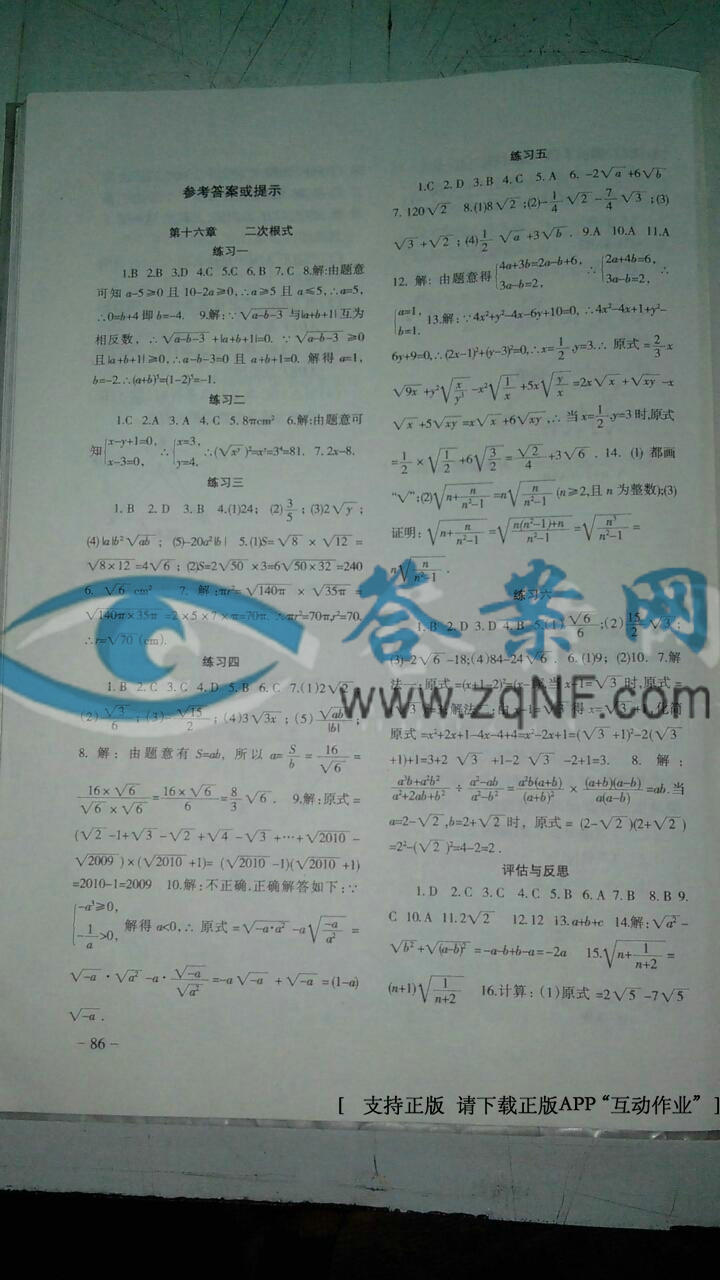 参考答案或提示
第十六章 二次根式
练习一
1.B 2.B 3.D 4.C 5.C 6.B 7.C 8.解:由题意
可知 a-5≥0 且 10-2a≥0,∴a≥5 且 a≤5,∴a=5,
∴0=b+4 即 b=-4. 9.解:∵√(a-b-3) 与|a+b+1|互为
相反数,∴√(a-b-3)+|a+b+1|=0. ∵√(a-b-3)≥0
且|a+b+1|≥0,∴a-b-3=0 且 a+b+1=0. 解得 a=1,
b=-2.∴(a+b)⁵=(1-2)⁵=-1.
练习二
1.C 2.A 3.A 4.C 5.8πcm² 6.解:由题意可
知{x-y+1=0, x-3=0, ∴{x=3, y=4. ∴(√(xʸ))²=xʸ=3⁴=81. 7.2x-8.
练习三
1.B 2.D 3.B 4.(1)24; (2)3/5; (3)2√y;
(4)|a|b²√(ab); (5)-20a²|b| 5.(1)S=√8×√12=
√(8×12)=4√6; (2)S=2√50×3=6√(50×32)=240
6. √6 cm² 7.解:πr²=√(140π)×√(35π)=
√(140π×35π)=2×5×7×π=70π.∴πr²=70π,r²=70.
∴r=√70(cm).
练习四
1.B 2.C 3.C 4.D 5.B 6.C 7.(1)2√2
(2)√3/6; (3)-√15/2; (4)3√(3x); (5)√(ab)/|b|;
8. 解:由题意有 S=ab, 所以 a=S/b=16/√6=
(16×√6)/(√6×√6)=(16×√6)/6=8/3√6. 9.解:原式=
(√2-1+√3-√2+√4-√3+…+√2010-
√2009)×(√2010+1)=(√2010-1)(√2010+1)
=2010-1=2009 10.解:不正确.正确解答如下:∵
{-a³≥0, -1/a>0, 解得 a<0,∴原式=√(-a·a²)-a√(-a/a²)=
√(-a)·√(a²)-a·√(-a)/√(a²)=-a√(-a)+√(-a)=(1-a)
√(-a).
- 86 -
练习五
1.C 2.D 3.B 4.C 5.A 6.-2√a+6√b
7. 120√2 8.(1)8√2;(2)-1/4√2-7/4√3;(3)
√3+√2;(4)1/2√a+3√b. 9.A 10.A 11.A
12. 解:由题意得{4a+3b=2a-b+6, 3a-b=2, ∴{2a+4b=6, 3a-b=2, ∴
{a=1, b=1. 13.解:∵4x²+y²-4x-6y+10=0, ∴4x²-4x+1+y²-
6y+9=0,∴(2x-1)²+(y-3)²=0,∴x=1/2,y=3.∴原式=2/3·x
√(9x)+y²√(x/y³)-x²√(1/x)+5x√(y/x)=2x√x+√(xy)-x
√x+5√(xy)=x√x+6√(xy),∴当 x=1/2,y=3 时,原式
=1/2×√(1/2)+6√(3/2)=√2/4+3√6. 14. (1)都画
“√”;(2)√(n+n/(n²-1))=n√(n/(n²-1))(n≥2,且 n 为整数);(3)
证明:√(n+n/(n²-1))=√((n(n²-1)+n)/(n²-1))=√(n³/(n²-1))=
n√(n/(n²-1)).
练习六
1.B 2.D 3.D 4.B 5.(1)√6/6;(2)15/2√3;
(3)-2√6-18;(4)84-24√6. 6.(1)9; (2)10. 7.解
原式=(x+1-2)²=(x-1)²,当 x=1-√3 时,原式=
解法二:由 x-1=√3 得 x=√3+1,化简
原式=x²+2x+1-4x-4+4=x²-2x+1=(√3+1)²-2(√3
+1)+1=3+2√3+1-2√3-2+1=3. 8. 解:
(a³b+a²b²)/(a²+2ab+b²)÷(a²-ab)/(a²-b²)=a²b(a+b)/(a+b)²×(a+b)(a-b)/a(a-b)=ab.当
a=2-√2,b=2+√2 时, 原式=(2-√2)(2+√2)
=2²-(√2)²=4-2=2.
评估与反思
1.D 2.C 3.C 4.C 5.B 6.A 7.B 8.B 9.
C 10.A 11.2√2 12.12 13.a+b+c 14.解:√(a²)-
√(b²)+√((a-b)²)=-a-b+b-a=-2a 15.√(n+1/(n+2))=
(n+1)√(1/(n+2)) 16.计算:(1)原式=2√5-7√5
答案网
www.zqNF.com
[ 支持正版 请下载正版APP“互动作业” ]